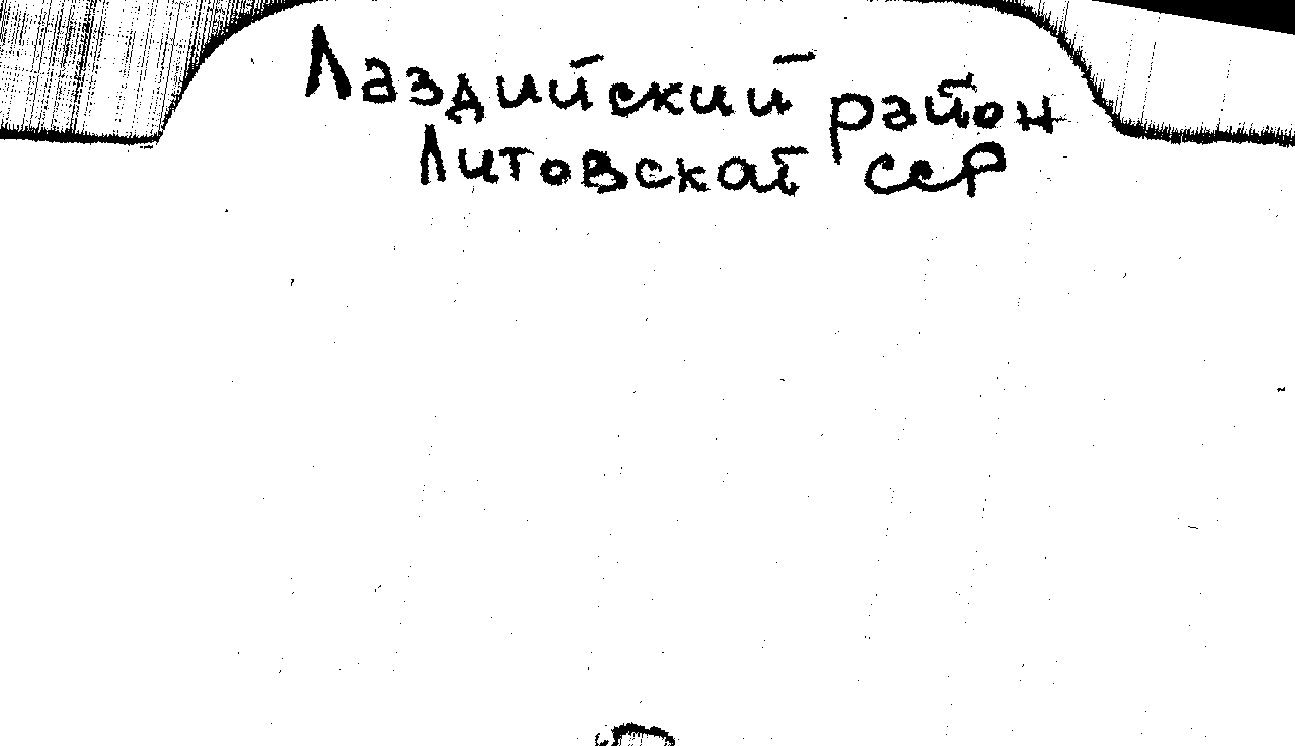 Лаздийский район
Литовской ССР